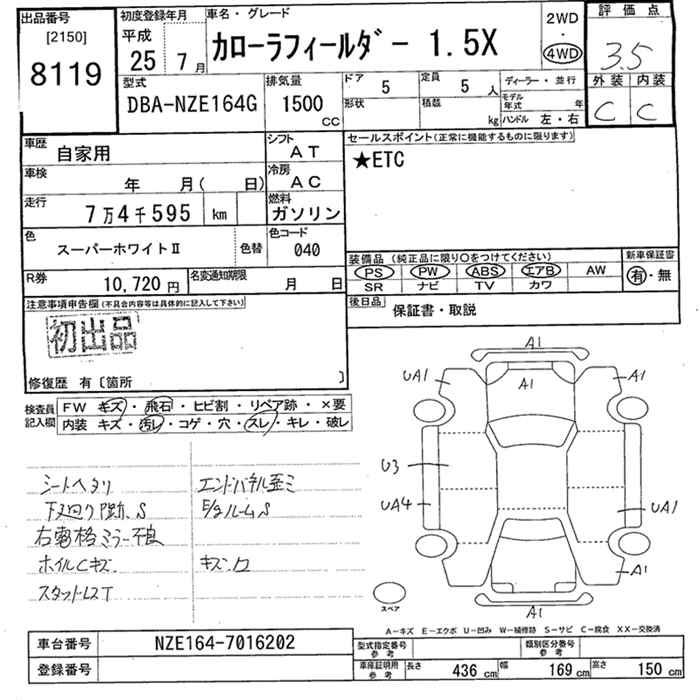 出品番号
[2150]
8119
初度登録年月
平成
25 7月
車名・グレード
カローラフィールダー 1.5X
2WD
・
4WD
評価点
3.5
外装 内装
C C
型式
DBA-NZE164G
排気量
1500
CC
ドア 5
形状
定員 5 人
積載 kg
ディーラー・並行
モデル年式 年
ハンドル 左・右
車歴
自家用
シフト
AT
セールスポイント(正常に機能するものに限ります)
★ETC
車検
年 月( 日)
冷房
AC
走行
7万4千595 km
燃料
ガソリン
色
スーパーホワイトⅡ
色替
色コード
040
装備品(純正品に限り○をつけてください)
新車保証書
PS PW ABS エアB AW
有・無
SR ナビ TV カワ
R券
10,720円
名変通知期限
月 日
後日品
保証書・取説
注意事項申告欄(不具合内容等は具体的に記入して下さい)
初出品
修復歴 有〔箇所 〕
検査員
記入欄
FW キズ・飛石・ヒビ割・リペア跡・×要
内装 キズ・汚レ・コゲ・穴・スレ・キレ・破レ
シートヘタリ
エンドパネル歪ミ
下廻リ跡、S
ルームS
右電格ミラー不良
ホイルCキズ
キズ、凹
スタットレスT
A1
UA1
A1
A1
U3
UA4
UA1
A1
A1
スペア
A-キズ E-エクボ U-凹み W-補修跡 S-サビ C-腐食 XX-交換済
車台番号
NZE164-7016202
登録番号
型式指定番号
参考
類別区分番号
参考
車庫証明用
参考
長さ 436 cm
幅 169 cm
高さ 150 cm